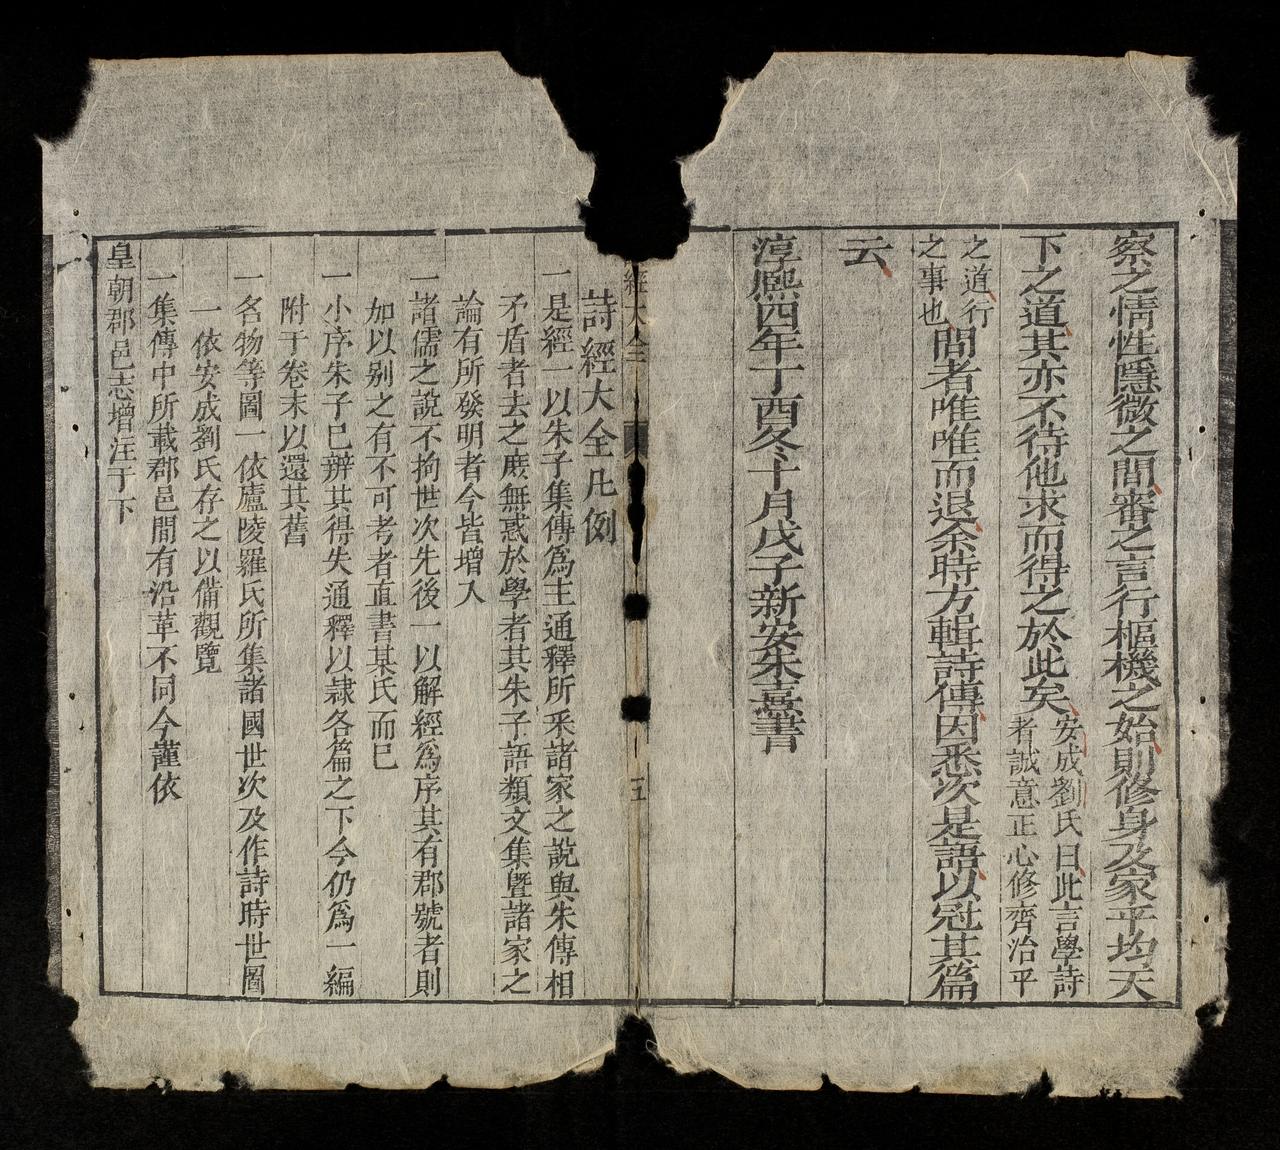 察之情性隱微之間審之言行樞機之始則修身及家平均天
下之道其亦不待他求而得之於此矣安成劉氏曰此言學詩
者誠意正心修齊治平
之道行
之事也問者唯唯而退余時方輯詩傳因悉次是語以冠其篇
云
淳熙四年丁酉冬十月戊子新安朱熹書
經大全
五
詩經大全凡例
一是經一以朱子集傳爲主通釋所采諸家之說與朱傳相
矛盾者去之庶無惑於學者其朱子語類文集曁諸家之
論有所發明者今皆增入
一諸儒之說不拘世次先後一以解經爲序其有郡號者則
如以别之有不可考者直書某氏而已
一小序朱子已辨其得失通釋以隷各篇之下今仍爲一編
附于卷末以還其舊
一名物等圖一依廬陵羅氏所集諸國世次及作詩時世圖
一依安成劉氏存之以備觀覽
一集傳中所載郡邑間有沿革不同今謹依
皇朝郡邑志增注于下